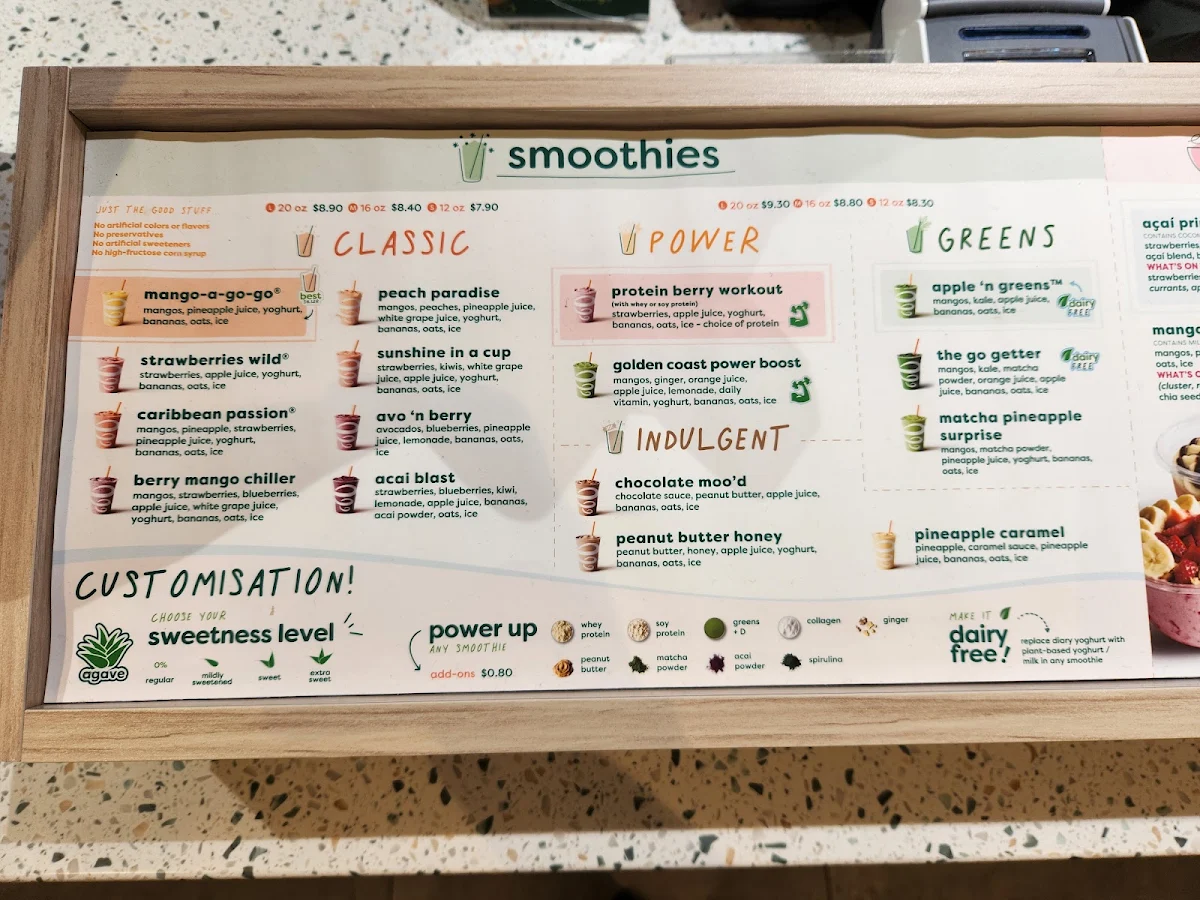 smoothies
JUST THE GOOD STUFF
No artificial colors or flavors
No preservatives
No artificial sweeteners
No high-fructose corn syrup
L 20 oz $8.90 M 16 oz $8.40 S 12 oz $7.90
CLASSIC
mango-a-go-go®
mangos, pineapple juice, yoghurt,
bananas, oats, ice
best
strawberries wild®
strawberries, apple juice, yoghurt,
bananas, oats, ice
caribbean passion®
mangos, pineapple, strawberries,
pineapple juice, yoghurt,
bananas, oats, ice
berry mango chiller
mangos, strawberries, blueberries,
apple juice, white grape juice,
yoghurt, bananas, oats, ice
peach paradise
mangos, peaches, pineapple juice,
white grape juice, yoghurt,
bananas, oats, ice
sunshine in a cup
strawberries, kiwis, white grape
juice, apple juice, yoghurt,
bananas, oats, ice
avo 'n berry
avocados, blueberries, pineapple
juice, lemonade, bananas, oats,
ice
acai blast
strawberries, blueberries, kiwi,
lemonade, apple juice, bananas,
acai powder, oats, ice
L 20 oz $9.30 M 16 oz $8.80 S 12 oz $8.30
POWER
protein berry workout
(with whey or soy protein)
strawberries, apple juice, yoghurt,
bananas, oats, ice - choice of protein
golden coast power boost
mangos, ginger, orange juice,
apple juice, lemonade, daily
vitamin, yoghurt, bananas, oats, ice
INDULGENT
chocolate moo'd
chocolate sauce, peanut butter, apple juice,
bananas, oats, ice
peanut butter honey
peanut butter, honey, apple juice, yoghurt,
bananas, oats, ice
pineapple caramel
pineapple, caramel sauce, pineapple
juice, bananas, oats, ice
GREENS
apple 'n greens™
mangos, kale, apple juice,
bananas, oats, ice
dairy
FREE
the go getter
mangos, kale, matcha
powder, orange juice, apple
juice, bananas, oats, ice
dairy
FREE
matcha pineapple
surprise
mangos, matcha powder,
pineapple juice, yoghurt, bananas,
oats, ice
CUSTOMISATION!
agave
CHOOSE YOUR
sweetness level
0%
regular
mildly
sweetened
sweet
extra
sweet
power up
ANY SMOOTHIE
add-ons $0.80
whey
protein
soy
protein
greens
+ D
collagen
ginger
peanut
butter
matcha
powder
acai
powder
spirulina
MAKE IT
dairy
free!
replace diary yoghurt with
plant-based yoghurt /
milk in any smoothie
açaí pri
strawberries
açaí blend, b
WHAT'S ON
strawberrie
currants, ap
mang
CONTAINS MIL
mangos, p
oats, ice
WHAT'S O
(cluster, r
chia seed